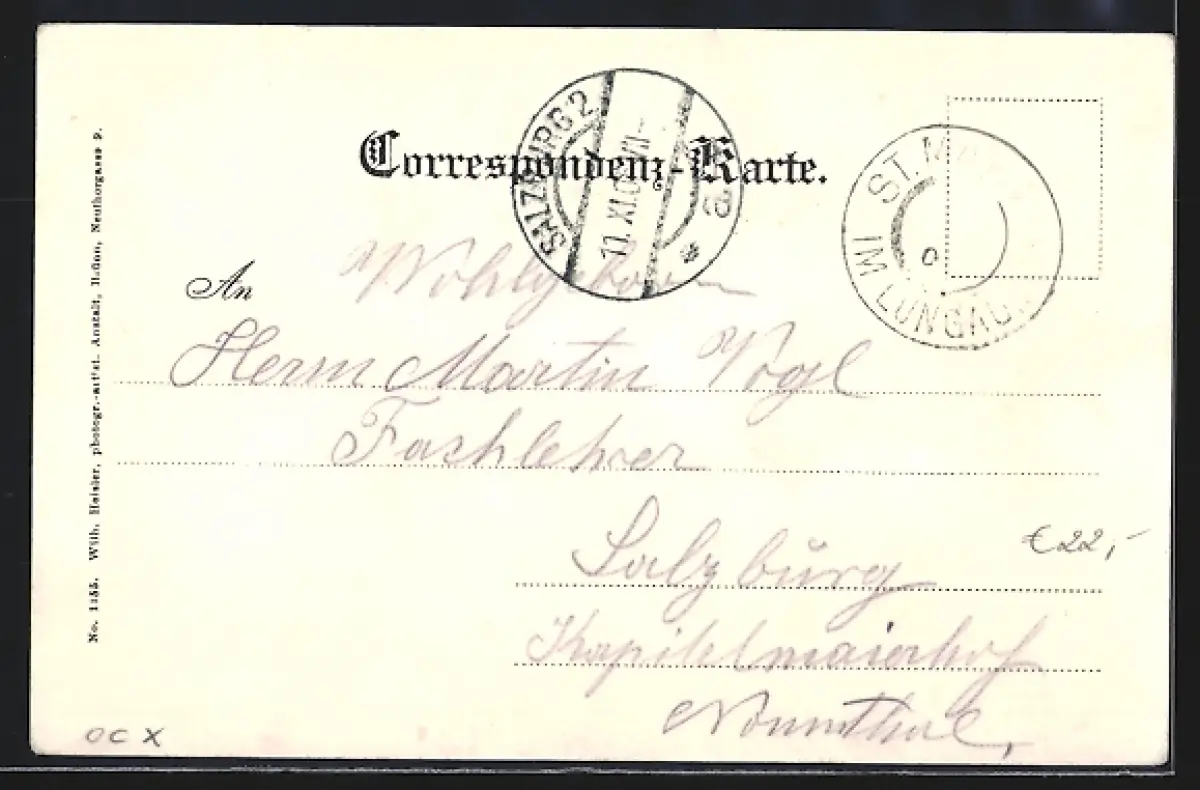 Correspondenz-Karte.
SALZBURG 2
11. XI.
ST. M
IM LUNGAU
An
Wohlgeboren
Herrn Martin Vogl
Fachlehrer
Salzburg
€ 22,-
Kapitelmaierhof
Nonnthal.
No. 1155. Wilh. Heisler, photogr.-artist. Anstalt, Hallein, Neuthorgasse 2.
OC X